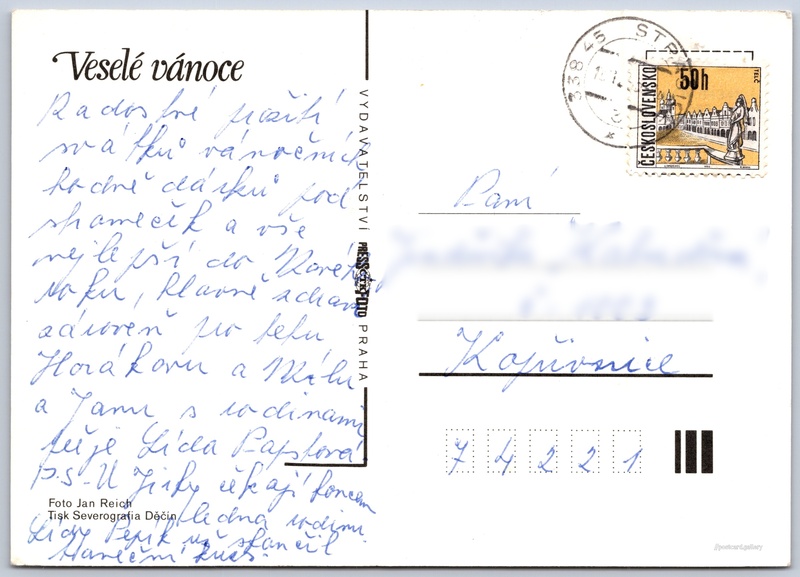 Veselé vánoce
Radostné prožití
svátků vánočních
hodně dárků pod
stromeček a vše
nejlepší do Nového
roku, hlavně zdraví
zároveň pro tetu
Horákovu a Mílu
a Janu s rodinami
přeje Lída Papšová
P.S-U Jirky čekají koncem
ledna rodinu.
Lídy Pepík už skončil
taneční kurs.
Foto Jan Reich
Tisk Severografia Děčín
VYDAVATELSTVÍ PRESSFOTO PRAHA
338 45 STR
50h
ČESKOSLOVENSKO
TELČ
Paní
Kopřivnice
74221